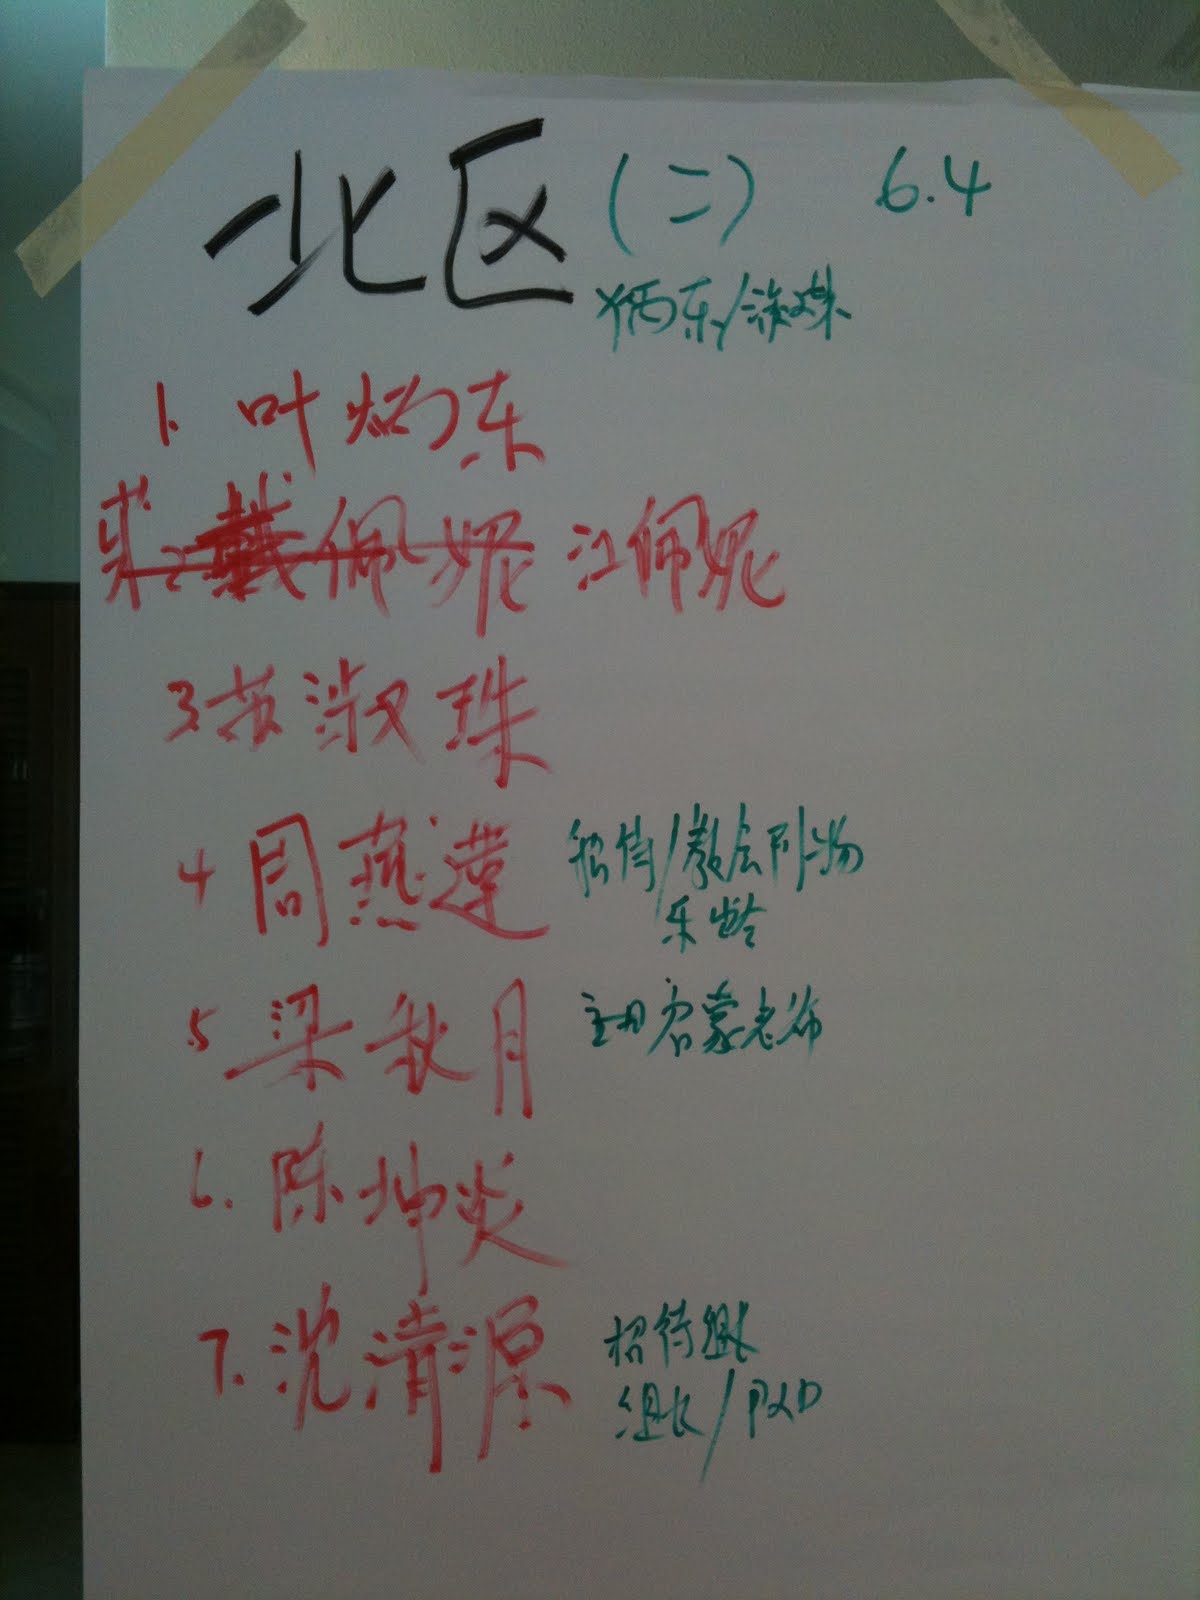 北区 (二) 6.4
炳东/淑珠
1. 叶炳东
2. 戴佩妮 江佩妮
3 苏淑珠
4 周燕莲 招待/教会刊物
乐龄
5 梁秋月 主日启蒙老师
6. 陈坤炎
7. 沈清源 招待组长
组长/